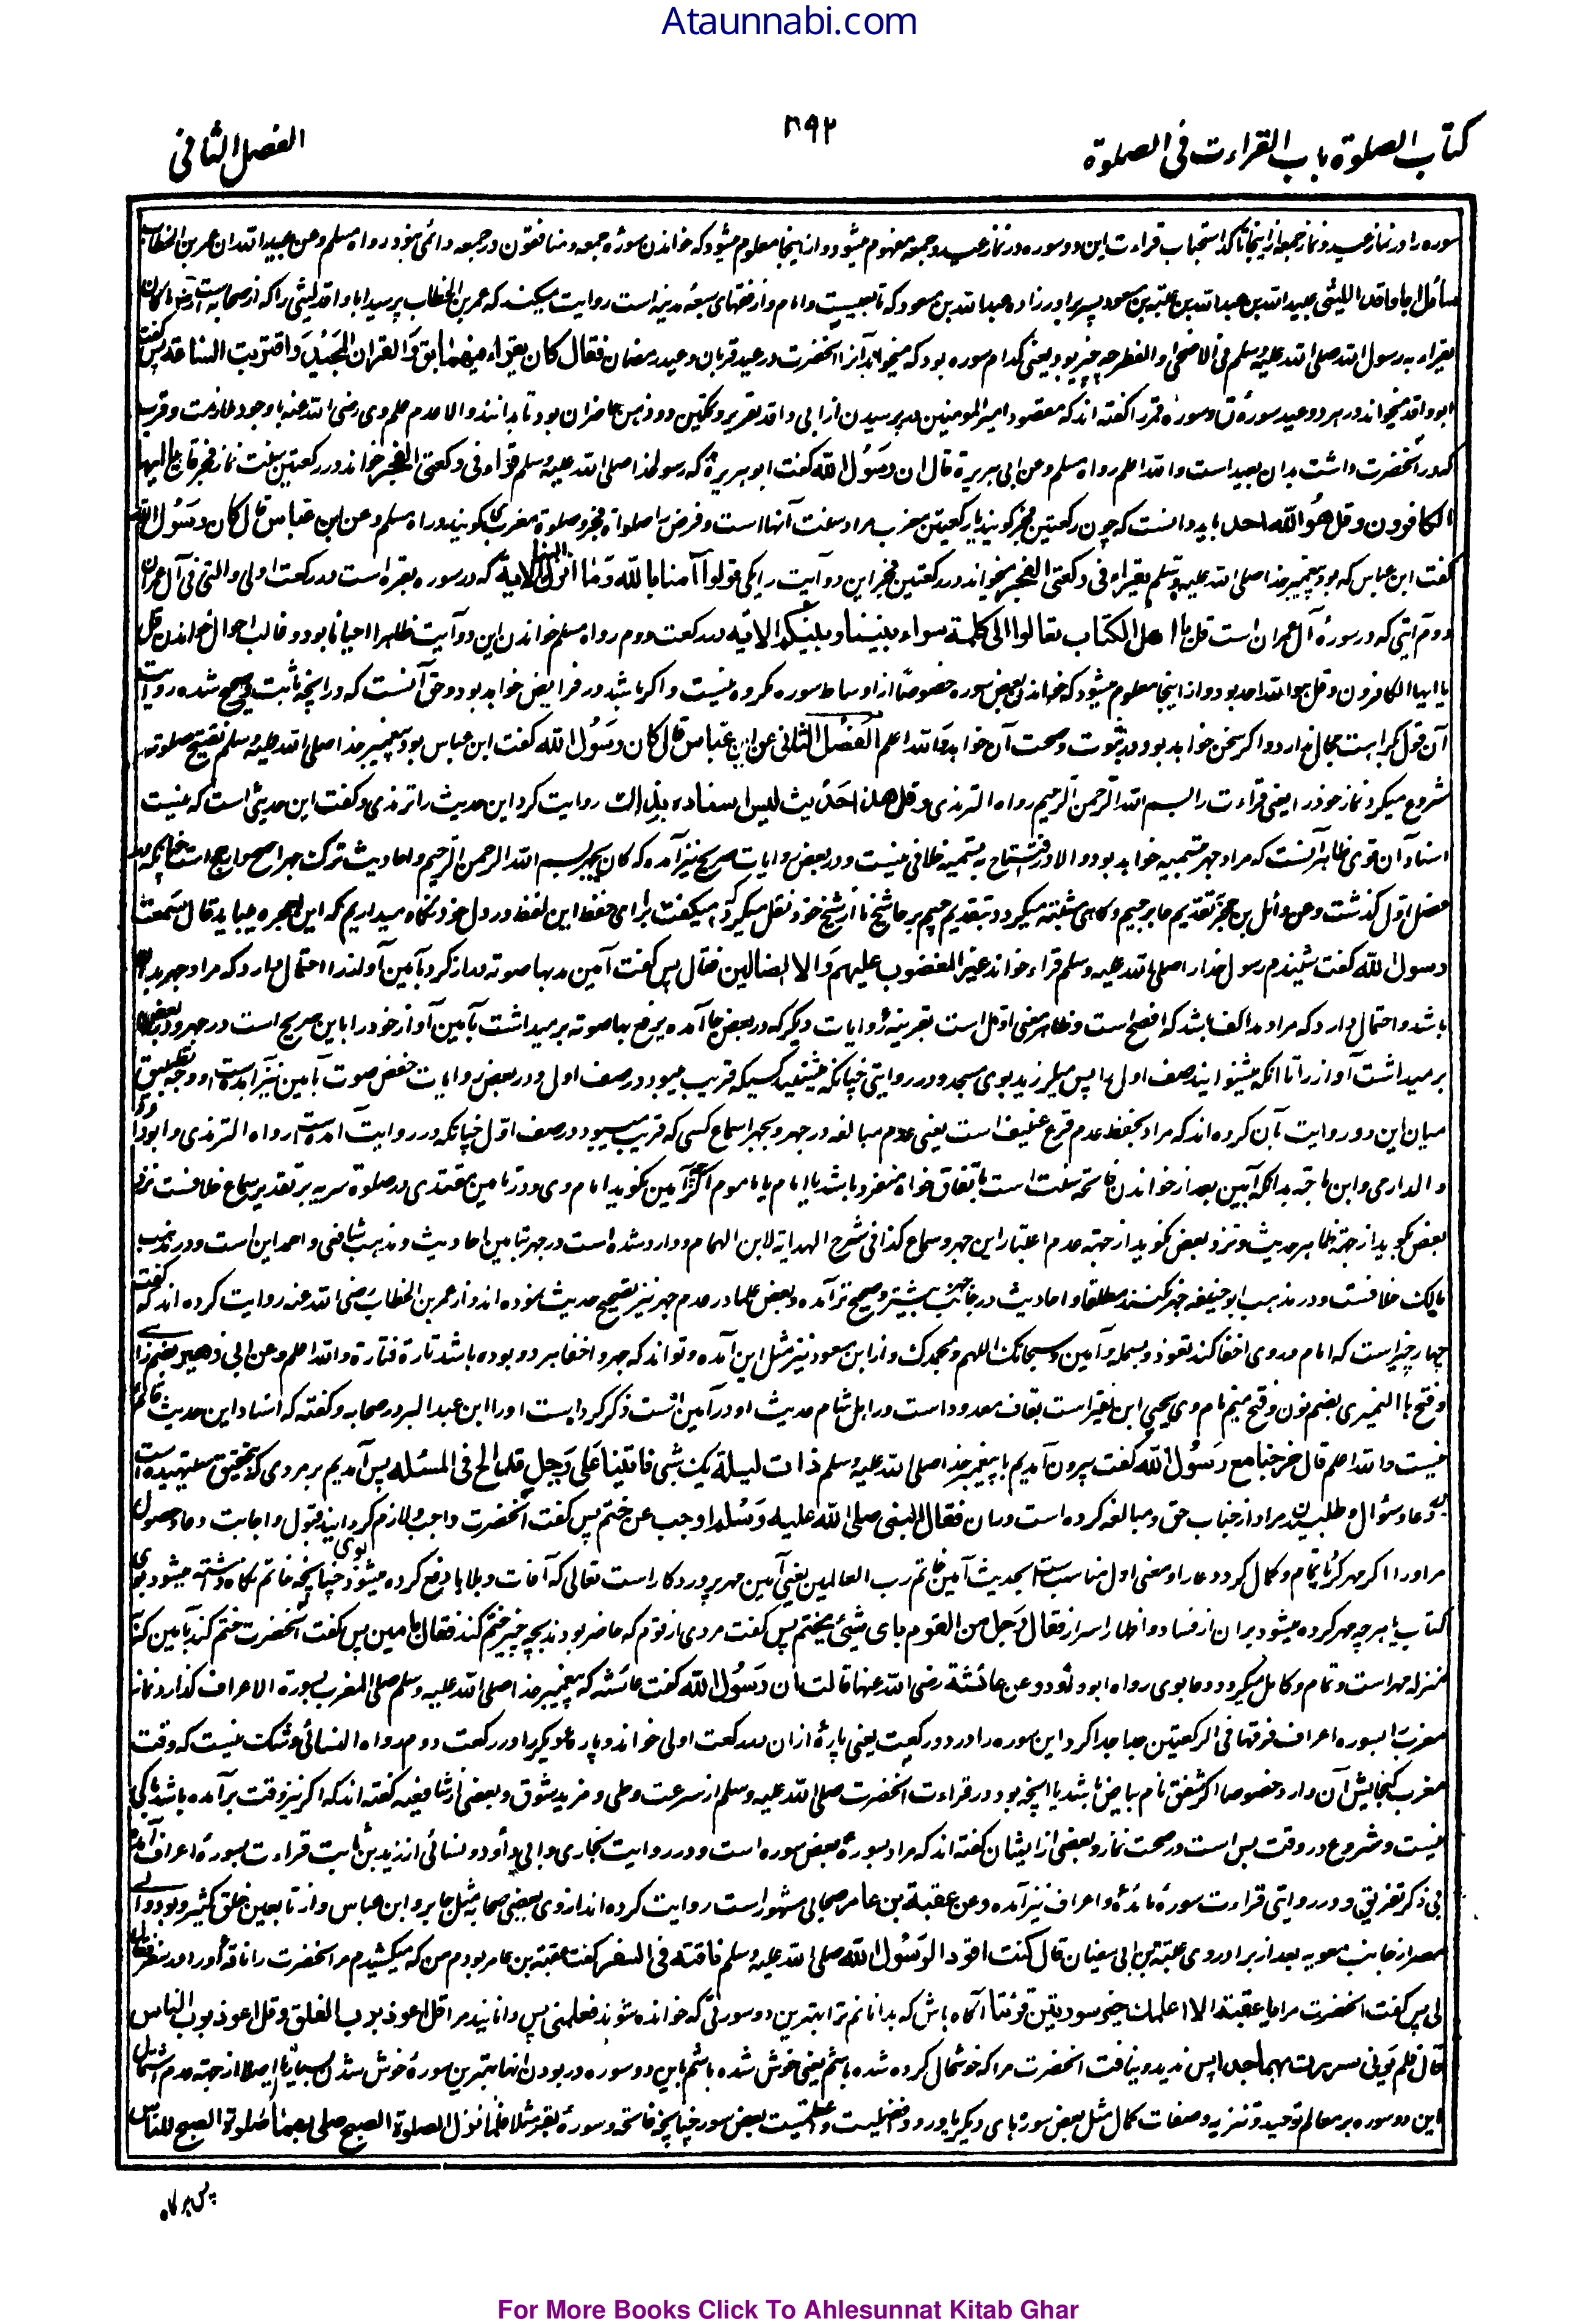 Ataunnabi.com
كتاب الصلوة باب القراءت فى الصلوة
۳۹۲
الفصل الثانى
سوره را در نماز عيد و نماز جمعه ازاينجا تاكد استحباب قراءت اين دو سوره در نماز عيد و جمعه مفهوم ميشود و ازينجا معلوم ميشود كه خواندن سورۀ جمعه و منافقون در جمعه دائمى نبود رواه مسلم وعن عبيد الله ان عمر بن الخطاب
سأل ابا واقد الليثى عبيد الله بن عبد الله بن عتبه بن مسعود پسر برادرزاده عبد الله بن مسعود كه تابعيست و امام و از فقهاى سبعۀ مدينه است روايت ميكند كه عمر بن الخطاب پرسيد ابا واقد ليثى را كه از صحابه است ما كان
يقراء به رسول الله صلى الله عليه وسلم فى الاضحى و الفطر چه چيز بود يعنى كدام سوره بود كه ميخواند آنرا آنحضرت در عيد قربان و عيد رمضان فقال كان يقراء فيهما بق والقران المجيد واقتربت الساعة پس گفت
ابو واقد ميخواند در هر دو عيد سورۀ ق و سورۀ قمر را گفته اند كه مقصود امير المومنين عمر پرسيدن از ابى واقد تقرير و تمكين در ذهن حاضران بود تا بدانند والا عدم علم وى رضى الله عنه با وجود ملازمت و قرب
كه در آنحضرت داشت بدان بعيد است والله اعلم رواه مسلم وعن ابى هريرة قال ان رسول الله گفت ابو هريرة كه رسولخدا صلى الله عليه وسلم قراء فى ركعتى الفجر خواند در ركعتين سنت نماز فجر قل يا ايها
الكافرون وقل هو الله احد بايد دانست كه چون ركعتين فجر گويند يا ركعتين مغرب مراد سنت آنها است و فرض را صلوة فجر و صلوة مغرب گويند رواه مسلم وعن ابن عباس قال كان رسول الله
گفت ابن عباس كه بود پيغمبر خدا صلى الله عليه وسلم يقراء فى ركعتى الفجر ميخواند در ركعتين فجر اين دو آيت را يكى قولوا آمنا بالله وما انزل الينا الاية كه در سوره بقره است در ركعت اولى والتى فى آل عمران
دوم آيتى كه در سورۀ آل عمران است قل يا اهل الكتاب تعالوا الى كلمة سواء بيننا وبينكم الاية در ركعت دوم رواه مسلم خواندن اين دو آيت ظاهرا احيانا بود و غالب احوال خواندن قل
يا ايها الكافرون و قل هو الله احد بود و از اينجا معلوم ميشود كه خواندن بعض سوره خصوصا از اوساط سوره مكروه نيست و اگر باشد در فرايض خواهد بود و حق آنست كه در انچه ثابت و صحيح شده روايت
آن قول بكراهت مجال ندارد و اگر سخن خواهد بود در ثبوت و صحت آن خواهد بود والله اعلم الفصل الثانى عن ابن عباس قال كان رسول الله گفت ابن عباس بود پيغمبر خدا صلى الله عليه وسلم يفتتح صلوته
شروع ميكرد نماز خود را يعنى قراءت را ببسم الله الرحمن الرحيم رواه الترمذى وقال هذا حديث ليس اسناده بذاك روايت كرد اين حديث را ترمذى و گفت اين حديثى است كه نيست
اسناد آن قوى ظاهر آنست كه مراد جهر بتسميه خواهد بود و الا در افتتاح به تسميه خلافى نيست و در بعض روايات صريح نيز آمده كه كان يجهر ببسم الله الرحمن الرحيم و احاديث ترك جهر اصح و ارجح است چنانكه در
فصل اول گذشت وعن وائل بن حجر بتقديم حا بر جيم
رسول الله گفت شنيدم رسول خدا را صلى الله عليه وسلم قراء خواند غير المغضوب عليهم ولا الضالين فقال پس گفت آمين مد بها صوته دراز كرد بآمين آواز را احتمال دارد كه مراد جهر بدان
باشد و احتمال دارد كه مراد مد الف باشد كه افصح است و ظاهر معنى اول است بقرينۀ روايات ديگر كه در بعض جا آمده يرفع بها صوته برميداشت بآمين آواز خود را و اين صريح است در جهر و در بعض
برميداشت آواز را تا آنكه ميشنوانيد صف اول را پس ميلرزيد بوى مسجد و در روايتى چنانكه ميشنيد كسيكه قريب ميبود در صف اول و در بعض روايات خفض صوت بآمين نيز آمده است و وجه تطبيق
ميان اين دو روايت بآن كرده اند كه مراد بخفض عدم قرع عنيف است يعنى عدم مبالغه در جهر و بجهر اسماع كسى كه قريب ميبود در صف اول چنانكه در روايت آمده است رواه الترمذى وابو داؤد
والدارمى وابن ماجة بدانكه آمين بعد از خواندن فاتحه سنت است باتفاق خواه منفرد باشد يا امام يا ماموم اگرچه آمين نگويد امام وى و در تامين مقتدى در صلوة سريه بر تقدير سماع خلافست نزد
بعض بگويد از جهة ظاهر حديث و نزد بعض نگويد از جهة عدم اعتبار اين جهر و سماع كذا فى شرح الهداية لابن الهمام و وارد شده است در جهر بتامين احاديث و مذهب شافعى و احمد اين است و در مذهب
مالك خلافست و در مذهب ابو حنيفه جهر نكنند مطلقا و احاديث در جانب جهر بيشتر و صحيح تر آمده و بعض علما در عدم جهر نيز تصحيح حديث نموده اند و از عمر بن الخطاب رضى الله عنه روايت كرده اند كه گفت
چهار چيز است كه امام در وى اخفا كند تعوذ و بسمله و آمين و سبحانك اللهم وبحمدك و از ابن مسعود نيز مثل اين آمده و تواند كه جهر و اخفا هر دو بوده باشد تارة فتارة والله اعلم وعن ابى زهير بضم زا
و فتح ها النميرى بضم نون و فتح ميم نام وى يحيى ابن نفير است بقاف معدود است در اهل شام حديث او در آمين است ذكر كرده است او را ابن عبد البر در صحابه و گفته كه اسناد اين حديث قائم
نيست والله اعلم قال خرجنا مع رسول الله گفت بيرون آمديم با پيغمبر خدا صلى الله عليه وسلم ذات ليلة يك شبى فاتينا على رجل قد الح فى المسئلة پس آمديم بر مردى كه بتحقيق ستيهيده است
در دعا و سؤال و طلبيدن مراد از جناب حق و مبالغه كرده است دران فقال النبى صلى الله عليه وسلم اوجب ان ختم پس گفت آنحضرت واجب و لازم گردانيد قبول و اجابت دعا و حصول
مراد را اگر مهر كرد يا تمام و كمال كرد دعا را و معنى اول مناسب است بحديث آمين خاتم رب العالمين يعنى آمين مهر پروردگار است تعالى كه آفات و بلايا دفع كرده ميشود بوى چنانچه خاتم نگاه داشته ميشود بوى
كتاب يا هر چه مهر كرده ميشود بران از فساد و اظهار اسرار فقال رجل من القوم باى شيئ يختم پس گفت مردى از قوم كه حاضر بودند بچه چيز ختم كند فقال بآمين پس گفت آنحضرت ختم كند بآمين كه
بمنزله مهر است و تمام و كامل ميگردد دعا بوى رواه ابو داؤد وعن عائشة رضى الله عنها قالت ان رسول الله گفت عائشه كه پيغمبر خدا صلى الله عليه وسلم صلى المغرب بسورة الاعراف گذارد نماز
مغرب بسوره اعراف فرقها فى الركعتين جدا جدا كرد اين سوره را در دو ركعت يعنى پارۀ ازان در ركعت اولى خواند و پاره ديگر را در ركعت دوم رواه النسائى و شك نيست كه وقت
مغرب گنجايش آن دارد خصوصا اگر شفق نام بياض باشد يا آنچه بود در قراءت آنحضرت صلى الله عليه وسلم از سرعت و طى و مزيد شوق و بعضى از شافعيه گفته اند كه اگر نيز وقت برآمده باشد باكى
نيست و شروع در وقت بس است در صحت نماز و بعضى از ايشان گفته اند كه مراد بسورۀ بعض سوره است و در روايت بخارى و ابى داؤد و نسائى از زيد بن ثابت قراءت سورۀ اعراف آمده
بى ذكر تفريق و در روايتى قراءت سورۀ مائدۀ و اعراف نيز آمده وعن عقبة بن عامر صحابى مشهور است روايت كرده اند از وى بعض صحابه مثل جابر و ابن عباس و از تابعين خلق كثير و بود والى
مصر از جانب معويه بعد از برادر وى عتبة بن ابى سفيان قال كنت اقود لرسول الله صلى الله عليه وسلم ناقته فى السفر گفت عقبة بن عامر بودم من كه ميكشيدم مر آنحضرت را ناقۀ او را در سفر فقال
لى پس گفت آنحضرت مرا يا عقبة الا اعلمك خير سورتين قرئتا آگاه باش كه بدانانم ترا بهترين دو سورتى كه خوانده شوند فعلمنى پس دانانيد مرا قل اعوذ برب الفلق وقل اعوذ برب الناس
قال فلم يرنى سررت بهما جدا پس نديد و نيافت آنحضرت مرا كه خوشحال كرده شده باشم يعنى خوش شده باشم باين دو سوره در بودن آنها بهترين سورۀ خوش شدن بسيار يا اصلا از جهة عدم اشتمال
اين دو سوره بر معالم توحيد و تنزيه و صفات كمال مثل بعض سورهاى ديگر يا ورود افضليت و اعظميت بعض سور چنانچه فاتحه و سورۀ بقره مثلا فلما نزل لصلوة الصبح صلى بهما صلوة الصبح للناس
پس هر گاه
For More Books Click To Ahlesunnat Kitab Ghar